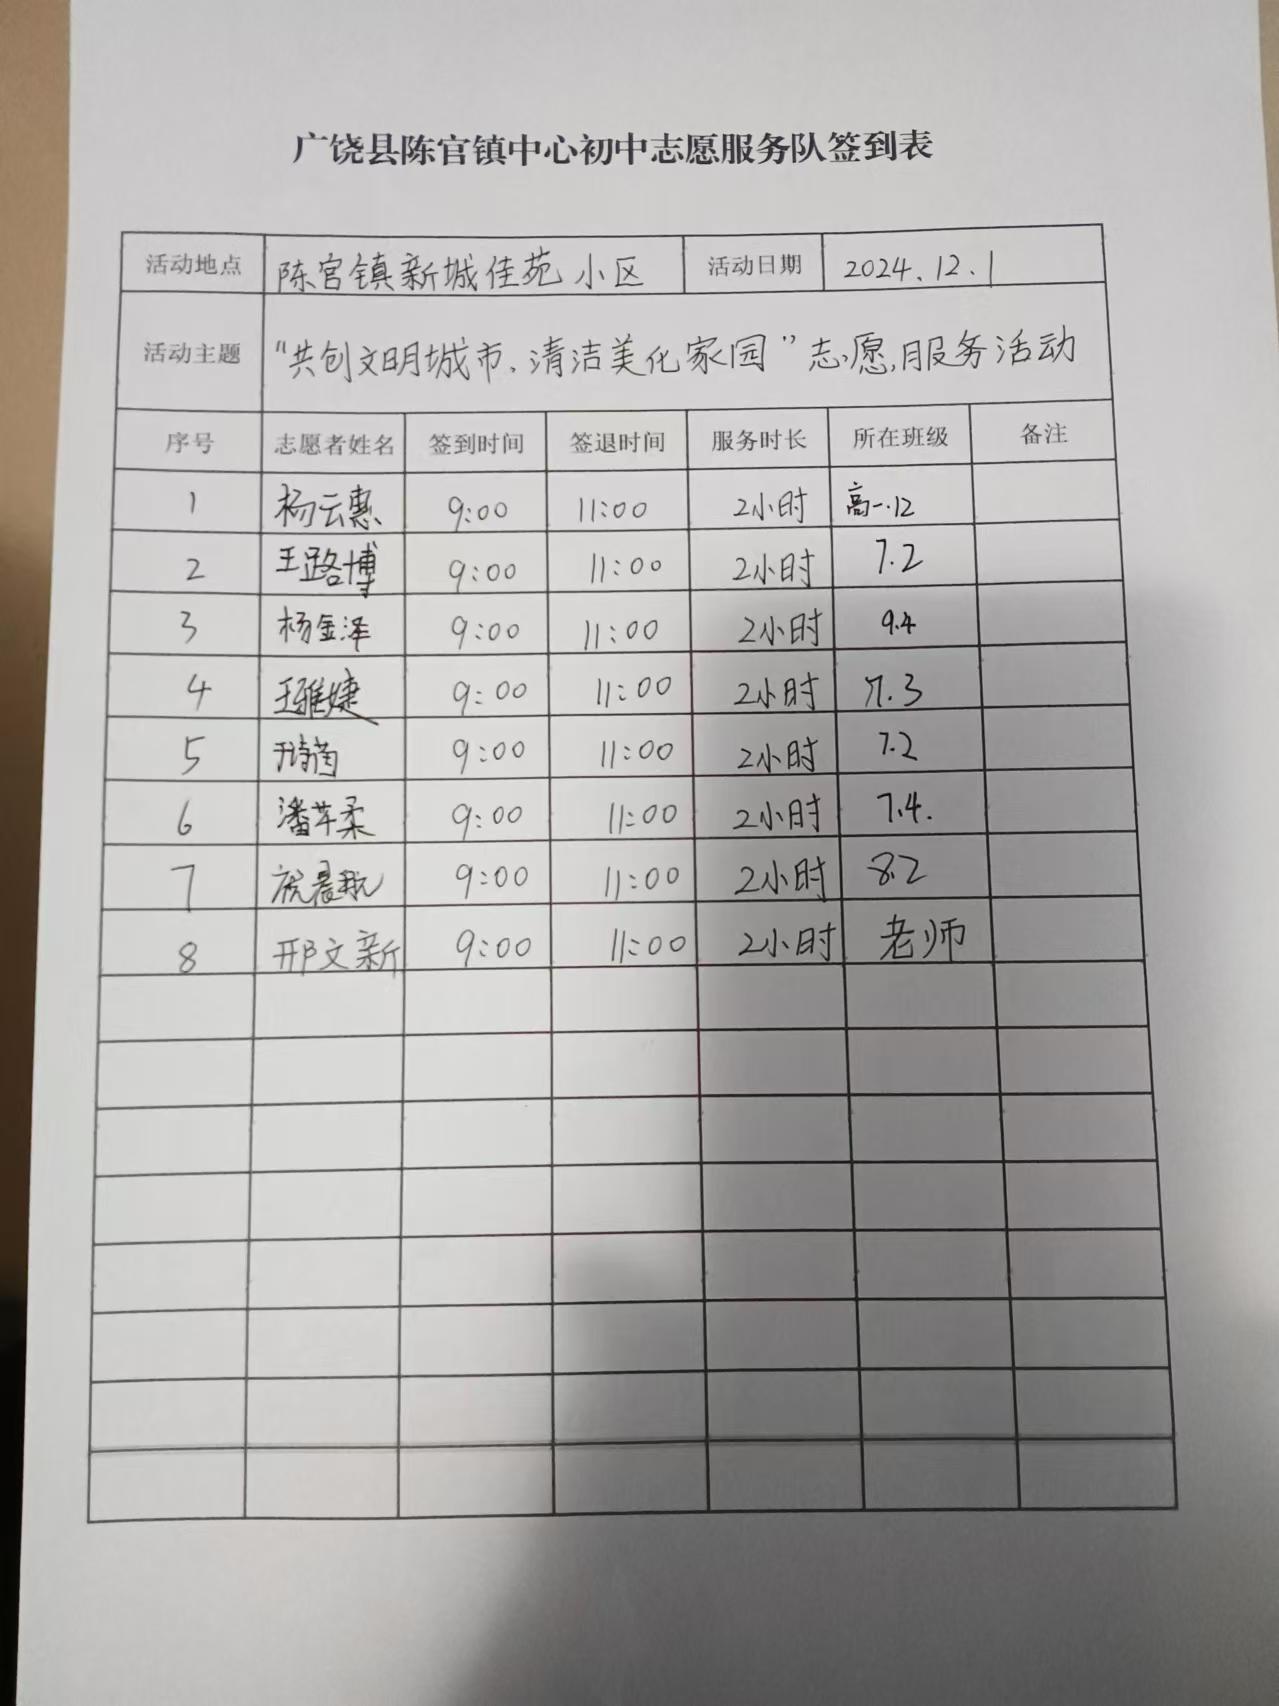 广饶县陈官镇中心初中志愿服务队签到表
活动地点 陈官镇新城佳苑小区 活动日期 2024.12.1
活动主题 “共创文明城市、清洁美化家园”志愿服务活动
序号 志愿者姓名 签到时间 签退时间 服务时长 所在班级 备注
1 杨云惠 9:00 11:00 2小时 高一.12
2 王路博 9:00 11:00 2小时 7.2
3 杨金泽 9:00 11:00 2小时 9.4
4 王雅婕 9:00 11:00 2小时 7.3
5 9:00 11:00 2小时 7.2
6 潘芊柔 9:00 11:00 2小时 7.4.
7 祝晨航 9:00 11:00 2小时 8.2
8 邢文新 9:00 11:00 2小时 老师